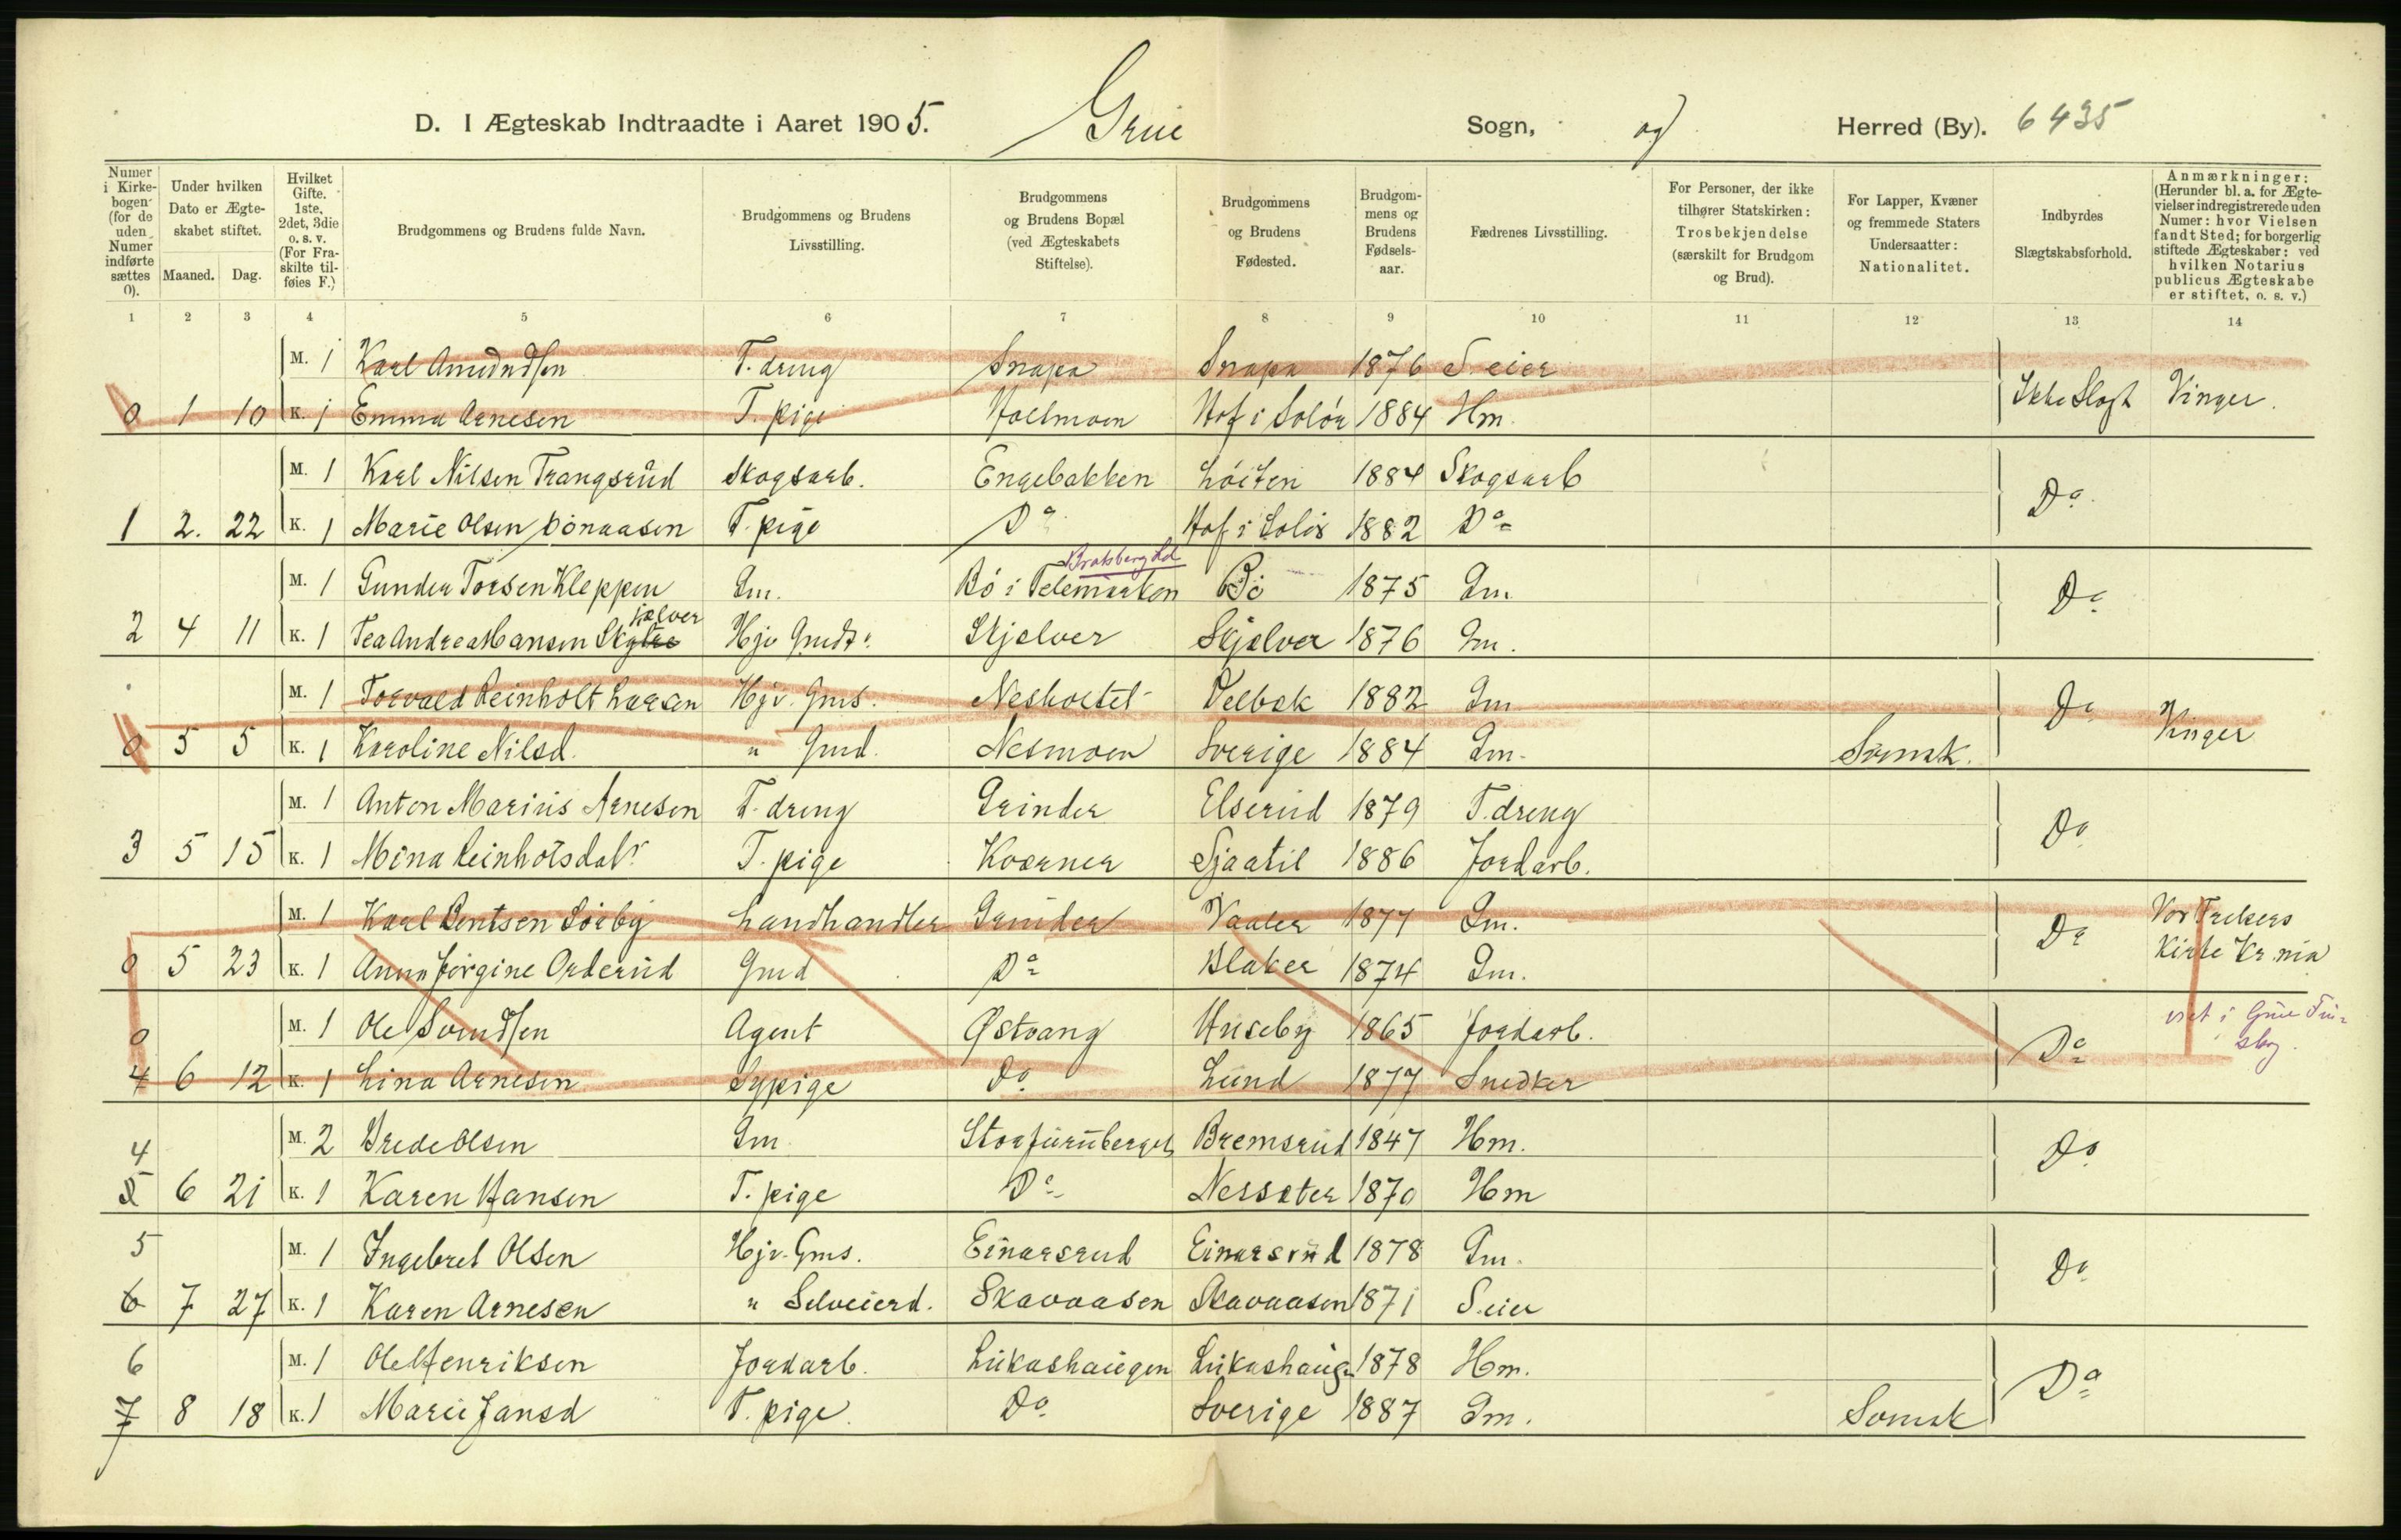 D. I Ægteskab Indtraadte i Aaret 1905. Grue Sogn, og Herred (By). 6435
Numer i Kirkebogen (for de uden Numer indførte sættes 0).
Under hvilken Dato er Ægteskabet stiftet.
Maaned. Dag.
Hvilket Gifte. 1ste, 2det, 3die o. s. v. (For Fraskilte tilføies F.)
Brudgommens og Brudens fulde Navn.
Brudgommens og Brudens Livsstilling.
Brudgommens og Brudens Bopæl (ved Ægteskabets Stiftelse).
Brudgommens og Brudens Fødested.
Brudgommens og Brudens Fødselsaar.
Fædrenes Livsstilling.
For Personer, der ikke tilhører Statskirken: Trosbekjendelse (særskilt for Brudgom og Brud).
For Lapper, Kvæner og fremmede Staters Undersaatter: Nationalitet.
Indbyrdes Slægtskabsforhold.
Anmærkninger: (Herunder bl. a. for Ægtevielser indregistrerede uden Numer: hvor Vielsen fandt Sted; for borgerlig stiftede Ægteskaber: ved hvilken Notarius publicus Ægteskabe er stiftet, o. s. v.)
1 2 3 4 5 6 7 8 9 10 11 12 13 14
M. 1 Karl Amundsen T. dreng Snapa Snapa 1876 S. eier
0 1 10 K. 1 Emma Arnesen T. pige Hof i Solør 1884 Hm. Ikke Slægt Vinger.
M. 1 Karl Nilsen Trangsrud Skogsarb. Engebakken Löiten 1884 Skogsarb
1 2. 22 K. 1 Marie Olsen T. pige Do Hof i Solör 1882 Do Do
Bratsberg
M. 1 Gunder Torsen Kleppen Gm. Bö i Telemarken Bö 1875 Gm
jælver
2 4 11 K. 1 Tea Andrea Hansen Hjv Gmdr. Skjælver Skjælver 1876 Gm. Do
M. 1 Torvald Reinholt Larsen Hjv. Gms. 1882 Gm
0 5 5 K. 1 Karoline Nilsd. " Gmd. Nesmoen Sverige 1884 Gm. Svensk. Do Vinger
M. 1 Anton Marius Arnesen T. dreng Grinder Elserud 1879 T. dreng
3 5 15 K. 1 Mina Reinholsdatr. T. pige Koerner Sjaatil 1886 Jordarb. Do
M. 1 Karl Bentsen Sörby Landhandler Grinder Vaaler 1877 Gm. Vor Frelsers
0 5 23 K. 1 Anna Jörgine Orderud Gmd Do Blaker 1874 Gm. Do Kirke Kr.nia
0 M. 1 Ole Svendsen Agent Østvang Huseby 1865 Jordarb. viet i Grue Finskog.
4 6 12 K. 1 Lina Arnesen Sypige Do Lund 1877 Snedker Do
4 M. 2 Brede Olsen Gm Bremsrud 1847 Hm.
5 6 21 K. 1 Karen Hansen T. pige Do Nessæter 1870 Hm Do
5 M. 1 Ingebret Olsen Hjv. Gms. Einarsrud Einarsrud 1878 Gm.
6 7 27 K. 1 Karen Arnesen " Selveierd. Skavaasen Skavaasen 1871 S. eier Do
6 M. 1 Ole Henriksen Jordarb. Lukashaugen Lukashaug. 1878 Hm.
7 8 18 K. 1 Marie Jansd T. pige. Do Sverige 1887 Gm. Svensk Do